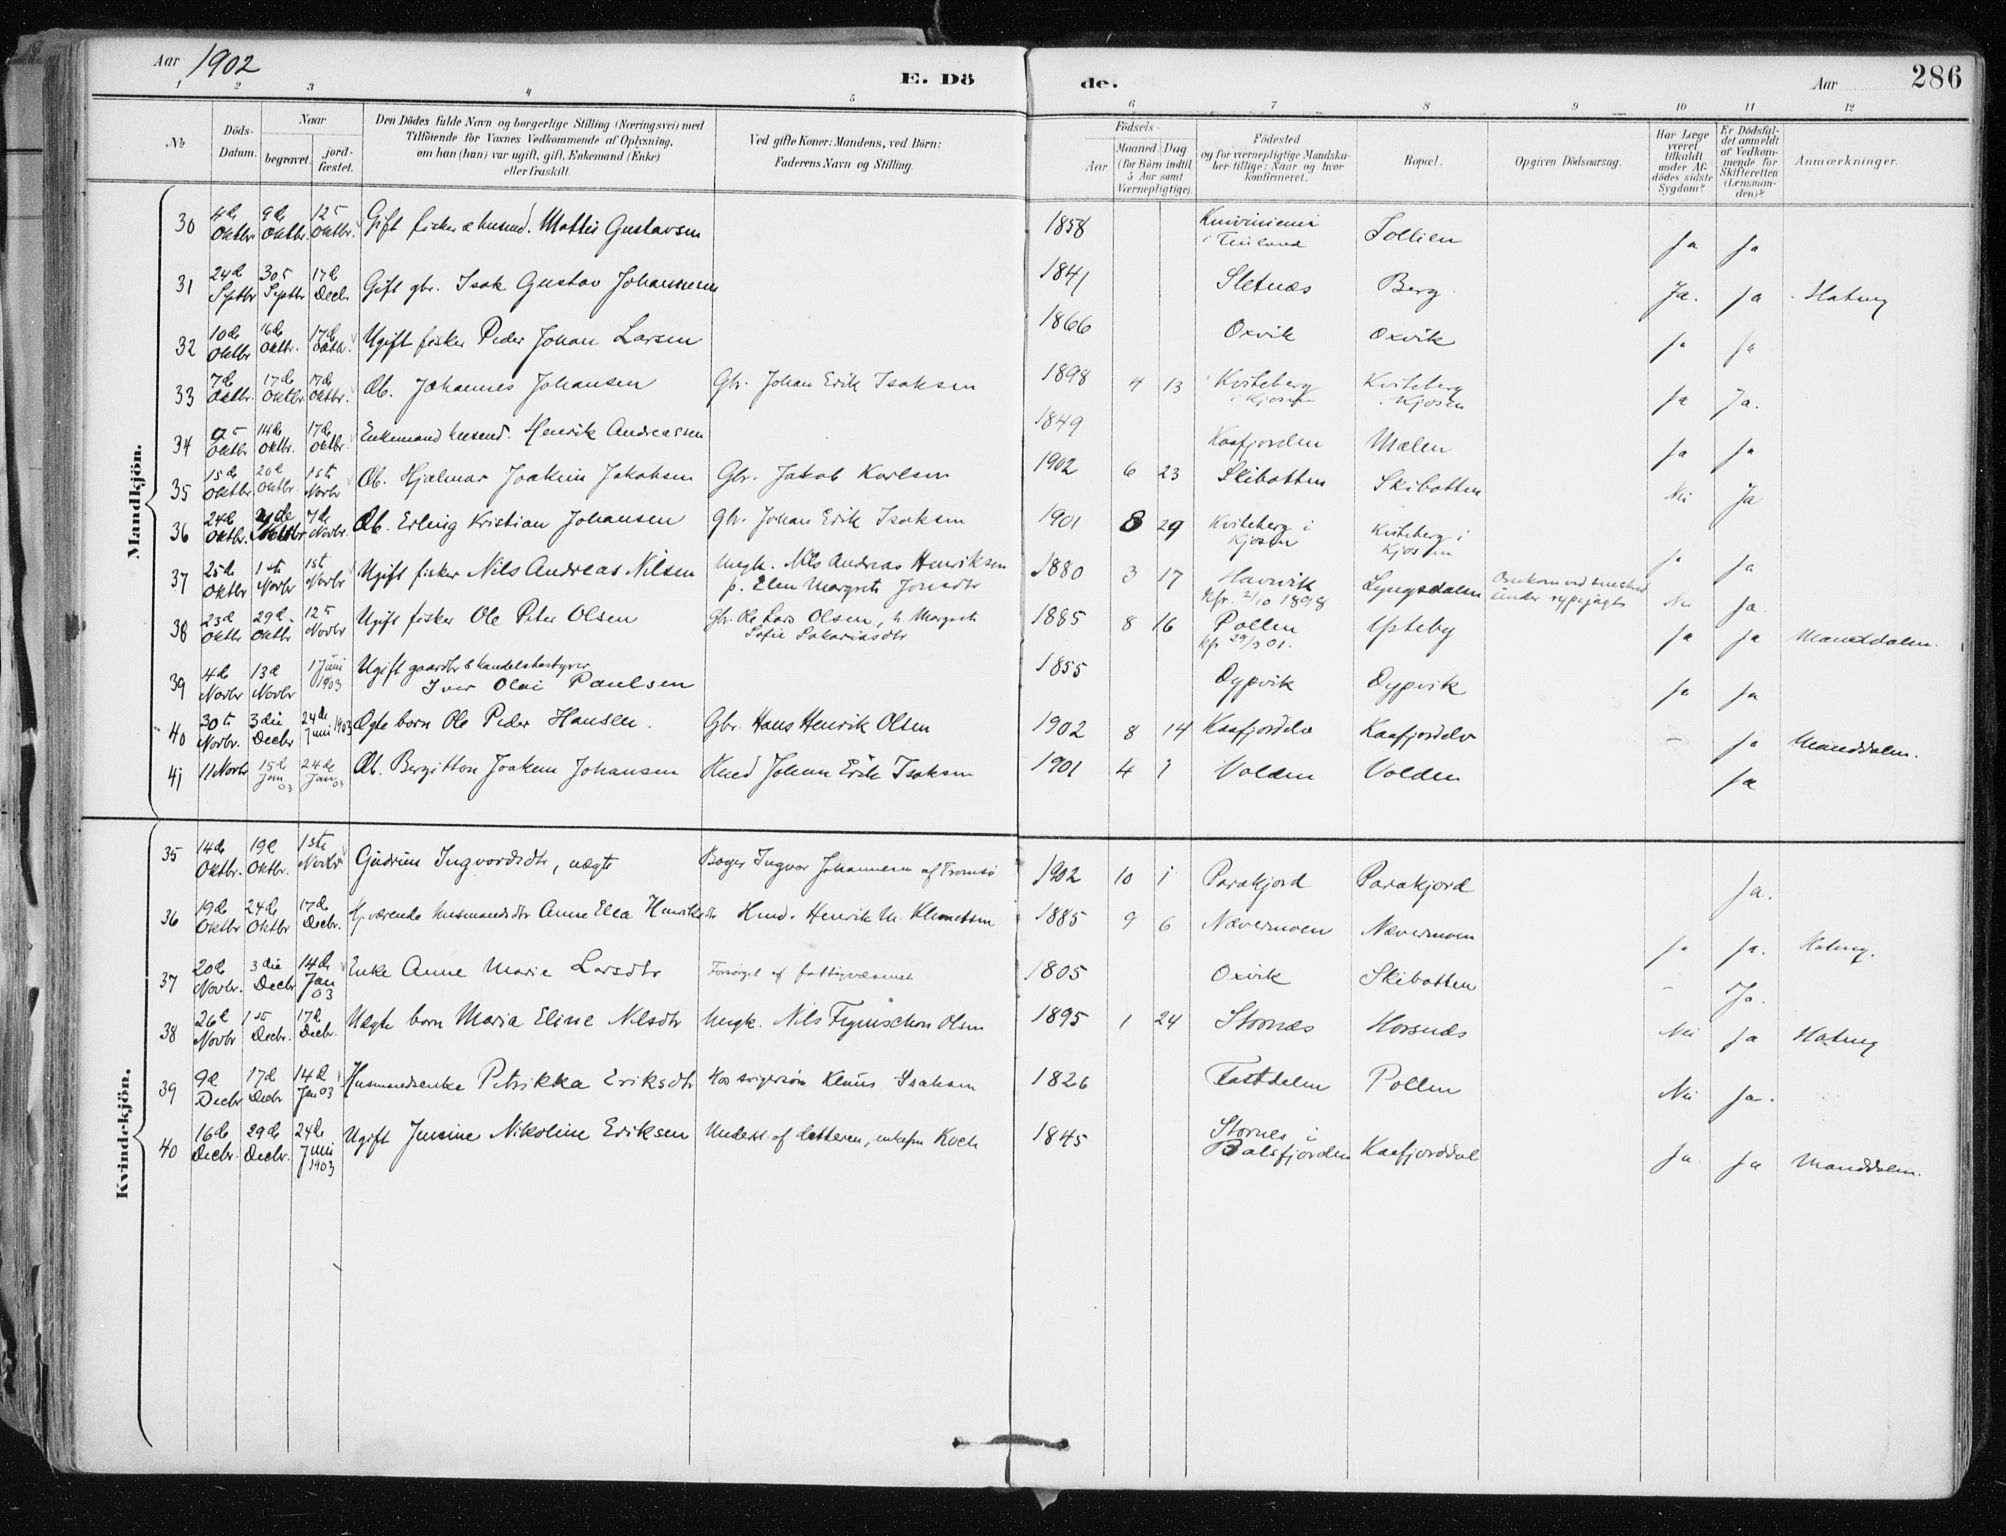 Aar 1902
E. Dö
de.
Aar
286
1 2 3 4 5 6 7 8 9 10 11 12
№
Döds-Datum.
Naar
begravet.
jord-fæstet.
Den Dödes fulde Navn og borgerlige Stilling (Næringsvei) med
Tilföiende for Voxnes Vedkommende af Oplysning,
om han (hun) var ugift, gift, Enkemand (Enke)
eller fraskilt.
Ved gifte Koner: Mandens, ved Börn:
Faderens Navn og Stilling.
Födsels-
Aar
Maaned. Dag
(for Börn indtil
5 Aar samt
Værnepligtige).
Födested
og for værnepligtige Mandska-
ber tillige: Naar og hvor
konfirmeret.
Bopæl.
Opgiven Dödsaarsag.
Har Læge
været
tilkaldt
under Af-
dödes sidste
Sygdom?
Er Dödsfal-
det anmeldt
af Vedkom-
mende for
Skifteretten
(Lensman-
den)?
Anmærkninger.
Mandkjön.
30 4de Oktbr. 9de Oktbr. 12te Oktbr. Gift fisker & husmd. Mattis Gustavsen 1858 i Finland Sollien ja ja
31 24de Septbr 30te Septbr 17de Decbr. Gift gbr. Isak Gustav Johannesen 1841 Sletnæs Berg Ja. ja Hatteng
32 10de Oktbr 16de Oktbr. 17de Oktbr. Ugift fisker Peder Johan Larsen 1866 Oxvik Oxvik ja ja
33 7de Oktbr. 17de Oktbr. 17de Oktbr. Æb. Johannes Johansen Gbr. Johan Erik Isaksen 1898 4 13 Kviteberg i Kjosen Kviteberg i Kjosen ja Ja.
34 Oktbr 14de Oktbr. 17de Oktbr. Enkemand husmd. Henrik Andreassen 1849 Kaafjorden Mælen ja ja
35 15de Oktbr. 20de Oktbr. 1ste Novbr Æb. Hjalmar Joakim Jakobsen Gbr. Jakob Karlsen 1902 6 23 Skibotten Skibotten Nei Ja
36 24de Oktbr. 7de Novbr. Æb. Erling Kristian Johansen Gbr. Johan Erik Isaksen 1901 8 29 Kviteberg i Kjosen Kviteberg i Kjosen ja ja
37 25de Oktbr 1ste Novbr 1ste Novbr Ugift fisker Nils Andreas Nilsen Ungk. Nils Andreas Henriksen
p. Elen Margrete Jonsdtr 1880 3 17 Havnvik Kfr. 2/10 1898 Lyngsdalen Omkom ved snesked under rypejagt Nei ja.
38 23de Oktbr 29de Oktbr 12te Novbr Ugift fisker Ole Peter Olsen Gbr. Ole Lars Olsen, h Margrete
Sofie Sakariasdtr 1885 8 16 Pollen Kfr 29/9 01. Ysteby ja ja Manddalen.
39 4de Novbr 13de Novbr 1 Juni 1903 Ugift gaardbr & handelsbestyrer
Iver Olai Paulsen 1855 Dypvik Dypvik ja ja
40 30te Novbr. 3die Decbr 24de Juni 1903 Ægte barn Ole Peder Hansen. Gbr. Hans Henrik Olsen 1902 8 14 Kaafjordelv Kaafjordelv – ja Manddalen.
41 11 Novbr 15de Jan 03 24de Jan 03 Æb. Bergitton Joakim Johansen Hmd Johan Erik Isaksen 1901 4 Volden Volden ja
Kvindekjön.
35 14de Oktbr. 19de Oktbr. 1ste Novbr Gudrun Ingvordsdtr, uægte Bager Ingvor Johannesen af Tromsø 1902 10 1 Parakjord Parakjord ja.
36 19de Oktbr 24de Oktbr 17de Decbr. Hj.værende husmandsdtr Anne Elea Henriksdtr Hmd. Henrik M. Klemetsen 1885 9 6 Nævermoen Nævermoen ja ja. Hatteng.
37 20de Novbr. 3die Decbr 14de Jan 03 Enke Anne Marie Larsdtr Forsørget af fattigvæsenet 1805 Oxvik Skibotten – Ja.
38 26de Novbr 1ste Decbr. 17de Decbr. Uægte barn Maria Eline Nilsdtr Ungk. Nils Olsen 1895 1 24 Stornæs Horsnæs Nei ja Hatteng
39 9de Decbr 17de Decbr 14de Jan 03 Husmandsenke Petrikka Eriksdtr Hos svigersøn Klaus Isaksen 1826 Fastdalen Pollen Nei ja.
40 16de Decbr. 29de Decbr. 24de Juni 1903 Ugift Jensine Nikoline Eriksen Underst. af datteren, enkefru Koch 1845 Stornes i Balsfjorden Kaafjorddal ja. ja Manddalen.